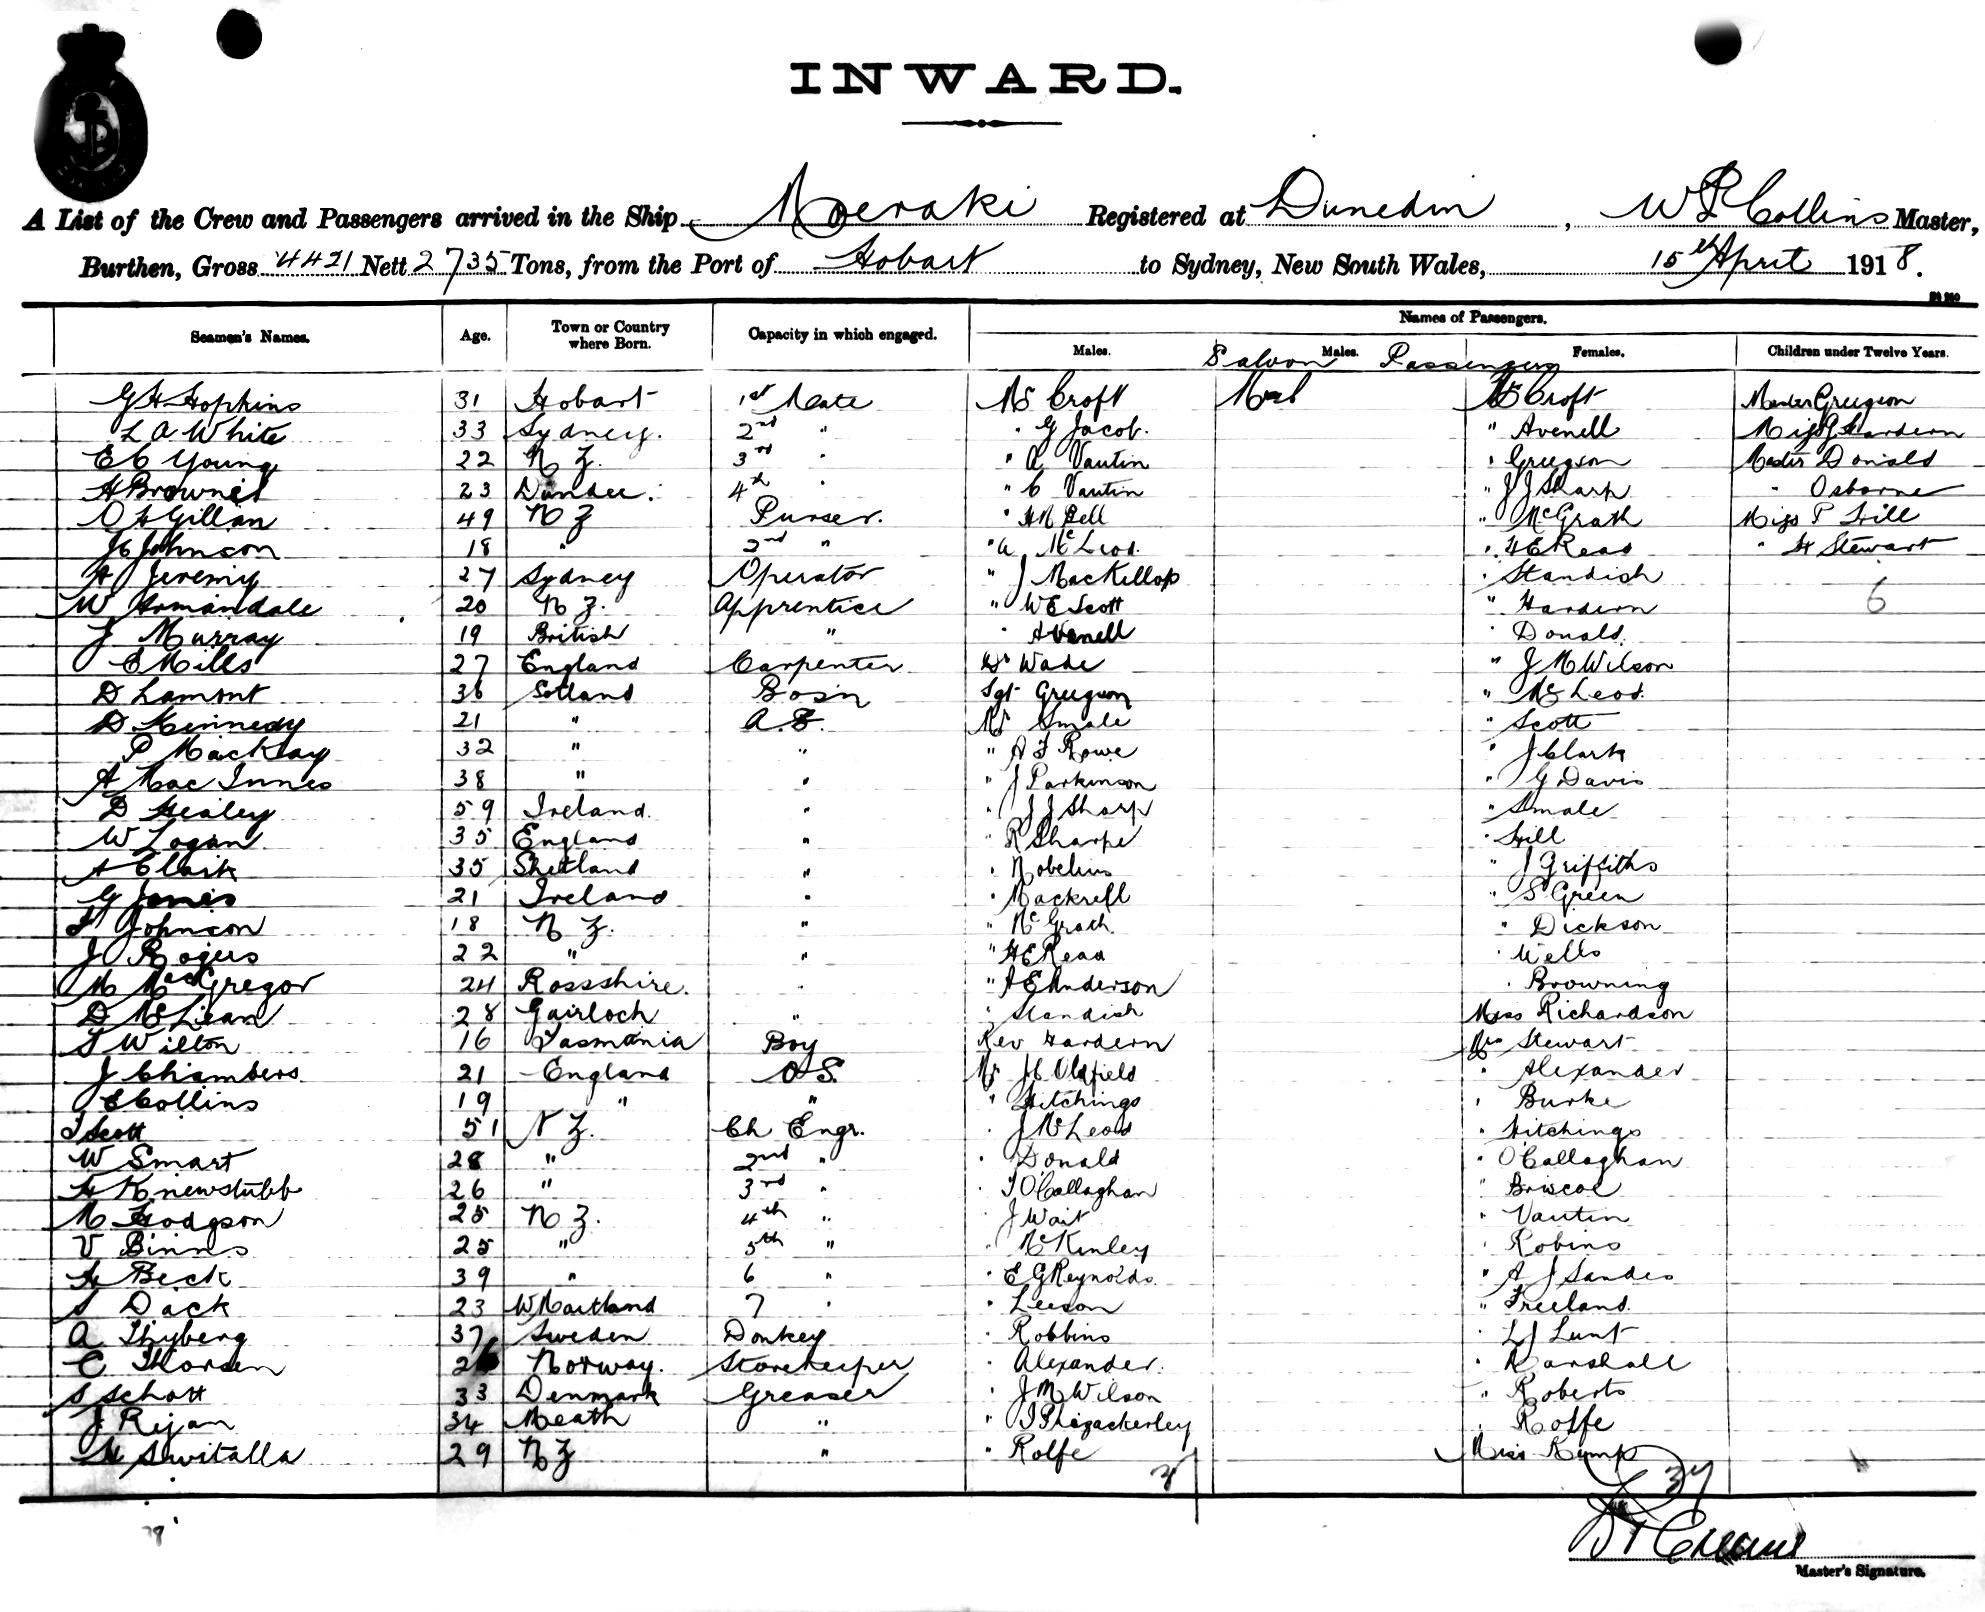 INWARD.
A List of the Crew and Passengers arrived in the Ship Moeraki Registered at Dunedin, W Collins Master,
Burthen, Gross 4421 Nett 2735 Tons, from the Port of Hobart to Sydney, New South Wales, 15th April 1918.
Names of Passengers.
Seamen's Names. Age. Town or Country where Born. Capacity in which engaged. Males. Males. Females. Children under Twelve Years.
Saloon Passengers
G H Hopkins 31 Hobart 1st Mate Mr Croft Mrs Croft Master Greegson
L A White 33 Sydney. 2nd " " G Jacob. " Avenell Miss G Hardern
E C Young 22 N Z. 3rd " " A Vautin " Greegson Master Donald
H Brown 23 Dundee. 4th " " C Vautin " J J Sharp " Osborne
O H Gillan 49 N Z Purser. " H M Bell " McGrath Miss P Hill
J C Johnson 18 " 2nd " " A McLeod. " H E Read " H Stewart
A Jeremy 27 Sydney Operator " J MacKillop " Standish
W Armandale 20 N Z. Apprentice " W E Scott " Hardern 6
J Murray 19 British " " Avenell " Donald.
C Mills 27 England Carpenter Dr Wade " J M Wilson
D Lamont 36 Scotland Bosn Sgt Greegson " McLeod.
D Kennedy 21 " A.B. Mr Smale " Scott
P MacKay 32 " " " A F Rowe " J Clark
A MacInnes 38 " " " J Parkinson " G Davis
D Healey 59 Ireland. " " J J Sharp " Smale
W Logan 35 England " " R Sharpe " Hill
A Clark 35 Shetland " " Nobelius " J Griffiths
G Jones 21 Ireland " " Mackrell " S Green
F Johnson 18 N Z. " " McGrath " Dickson
J Rogers 22 " " " H E Read " Wells
M MacGregor 24 Rossshire. " " A E Anderson " Browning
D McLean 28 Gairloch " " Standish Miss Richardson
T Wilton 16 Tasmania Boy Rev Hardern Mrs Stewart
J Chambers 21 England O S. Mr J C Oldfield " Alexander
E Collins 19 " " " Hitchings " Burke
J Scott 51 N Z. Ch Engr. " J McLeod " Hitchings
W Smart 28 " 2nd " " Donald " O'Callaghan
H Knewstubb 26 " 3rd " " J O'Callaghan " Briscoe
M Hodgson 25 N Z. 4th " " J Wait " Vautin
V Binns 25 " 5th " " McKinley " Robins
H Beck 39 " 6 " " E G Reynolds " A J Sandes
S Dack 23 W Maitland 7 " " Leeson " Freeland.
A Thyberg 37 Sweden Donkey " Robbins " L J Lunt
C Thorsen 26 Norway. Storekeeper " Alexander. " Marshall
S Schott 33 Denmark Greaser " J M Wilson " Roberts
J Ryan 34 Meath " " J Phizackerley " Rolfe
H Switalla 29 N Z " " Rolfe Miss Kemp
37
Master's Signature.